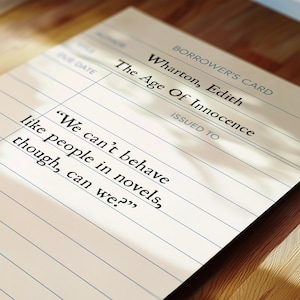 BORROWER'S CARD
AUTHOR
Wharton, Edith
TITLE
The Age Of Innocence
DUE DATE
ISSUED TO
“We can't behave
like people in novels,
though, can we?”